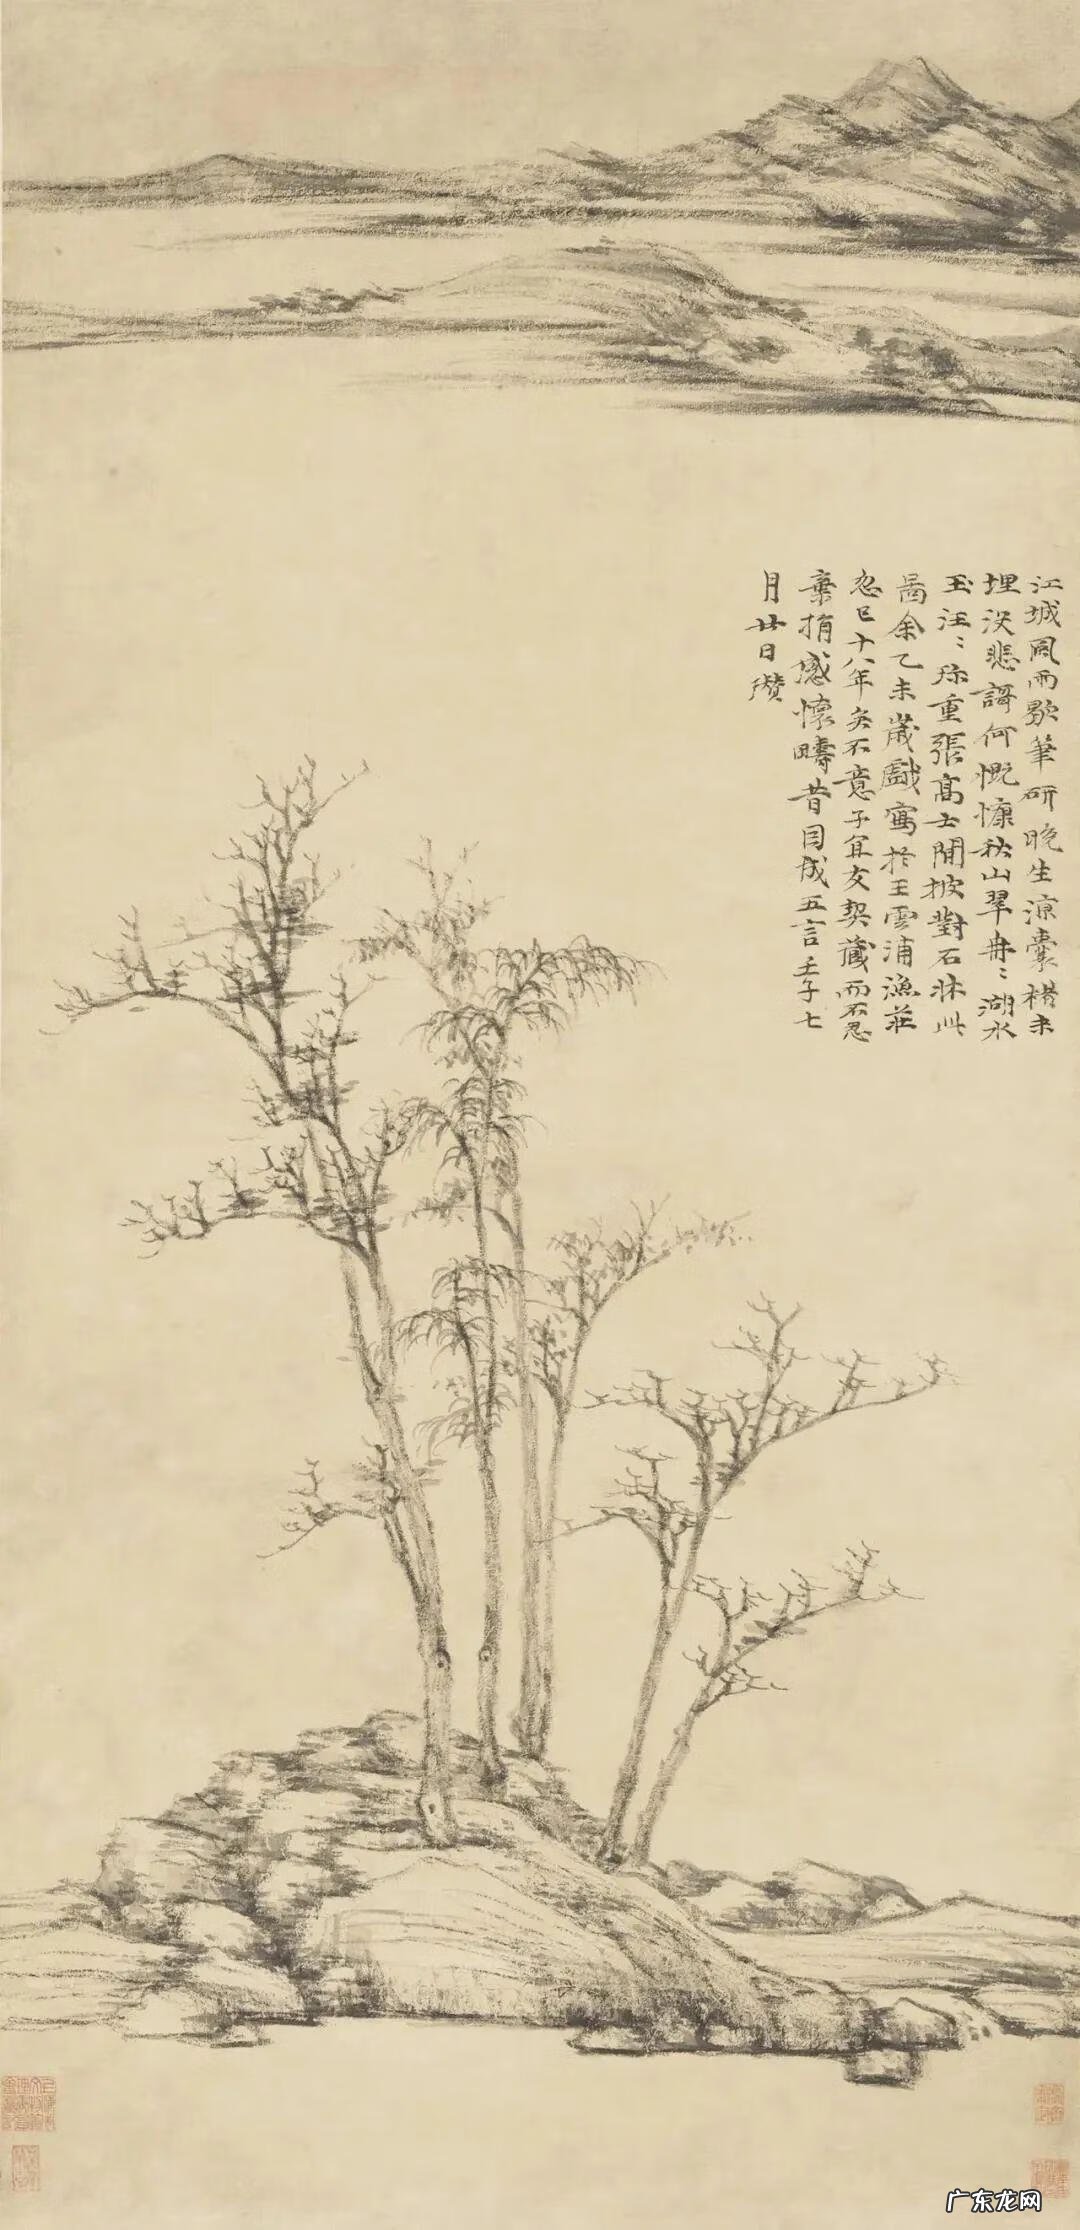 江城風雨歇筆研晚生涼囊楮未
埋没悲謌何慨慷秋山翠冉〻湖水
玉汪〻珍重張高士閒披對石牀此
啚余乙未歲戲寫於王雲浦漁莊
忽已十八年矣不意子宜友契藏而不忍
棄捐感懷疇昔因成五言壬子七
月廿日瓚
广东龙网